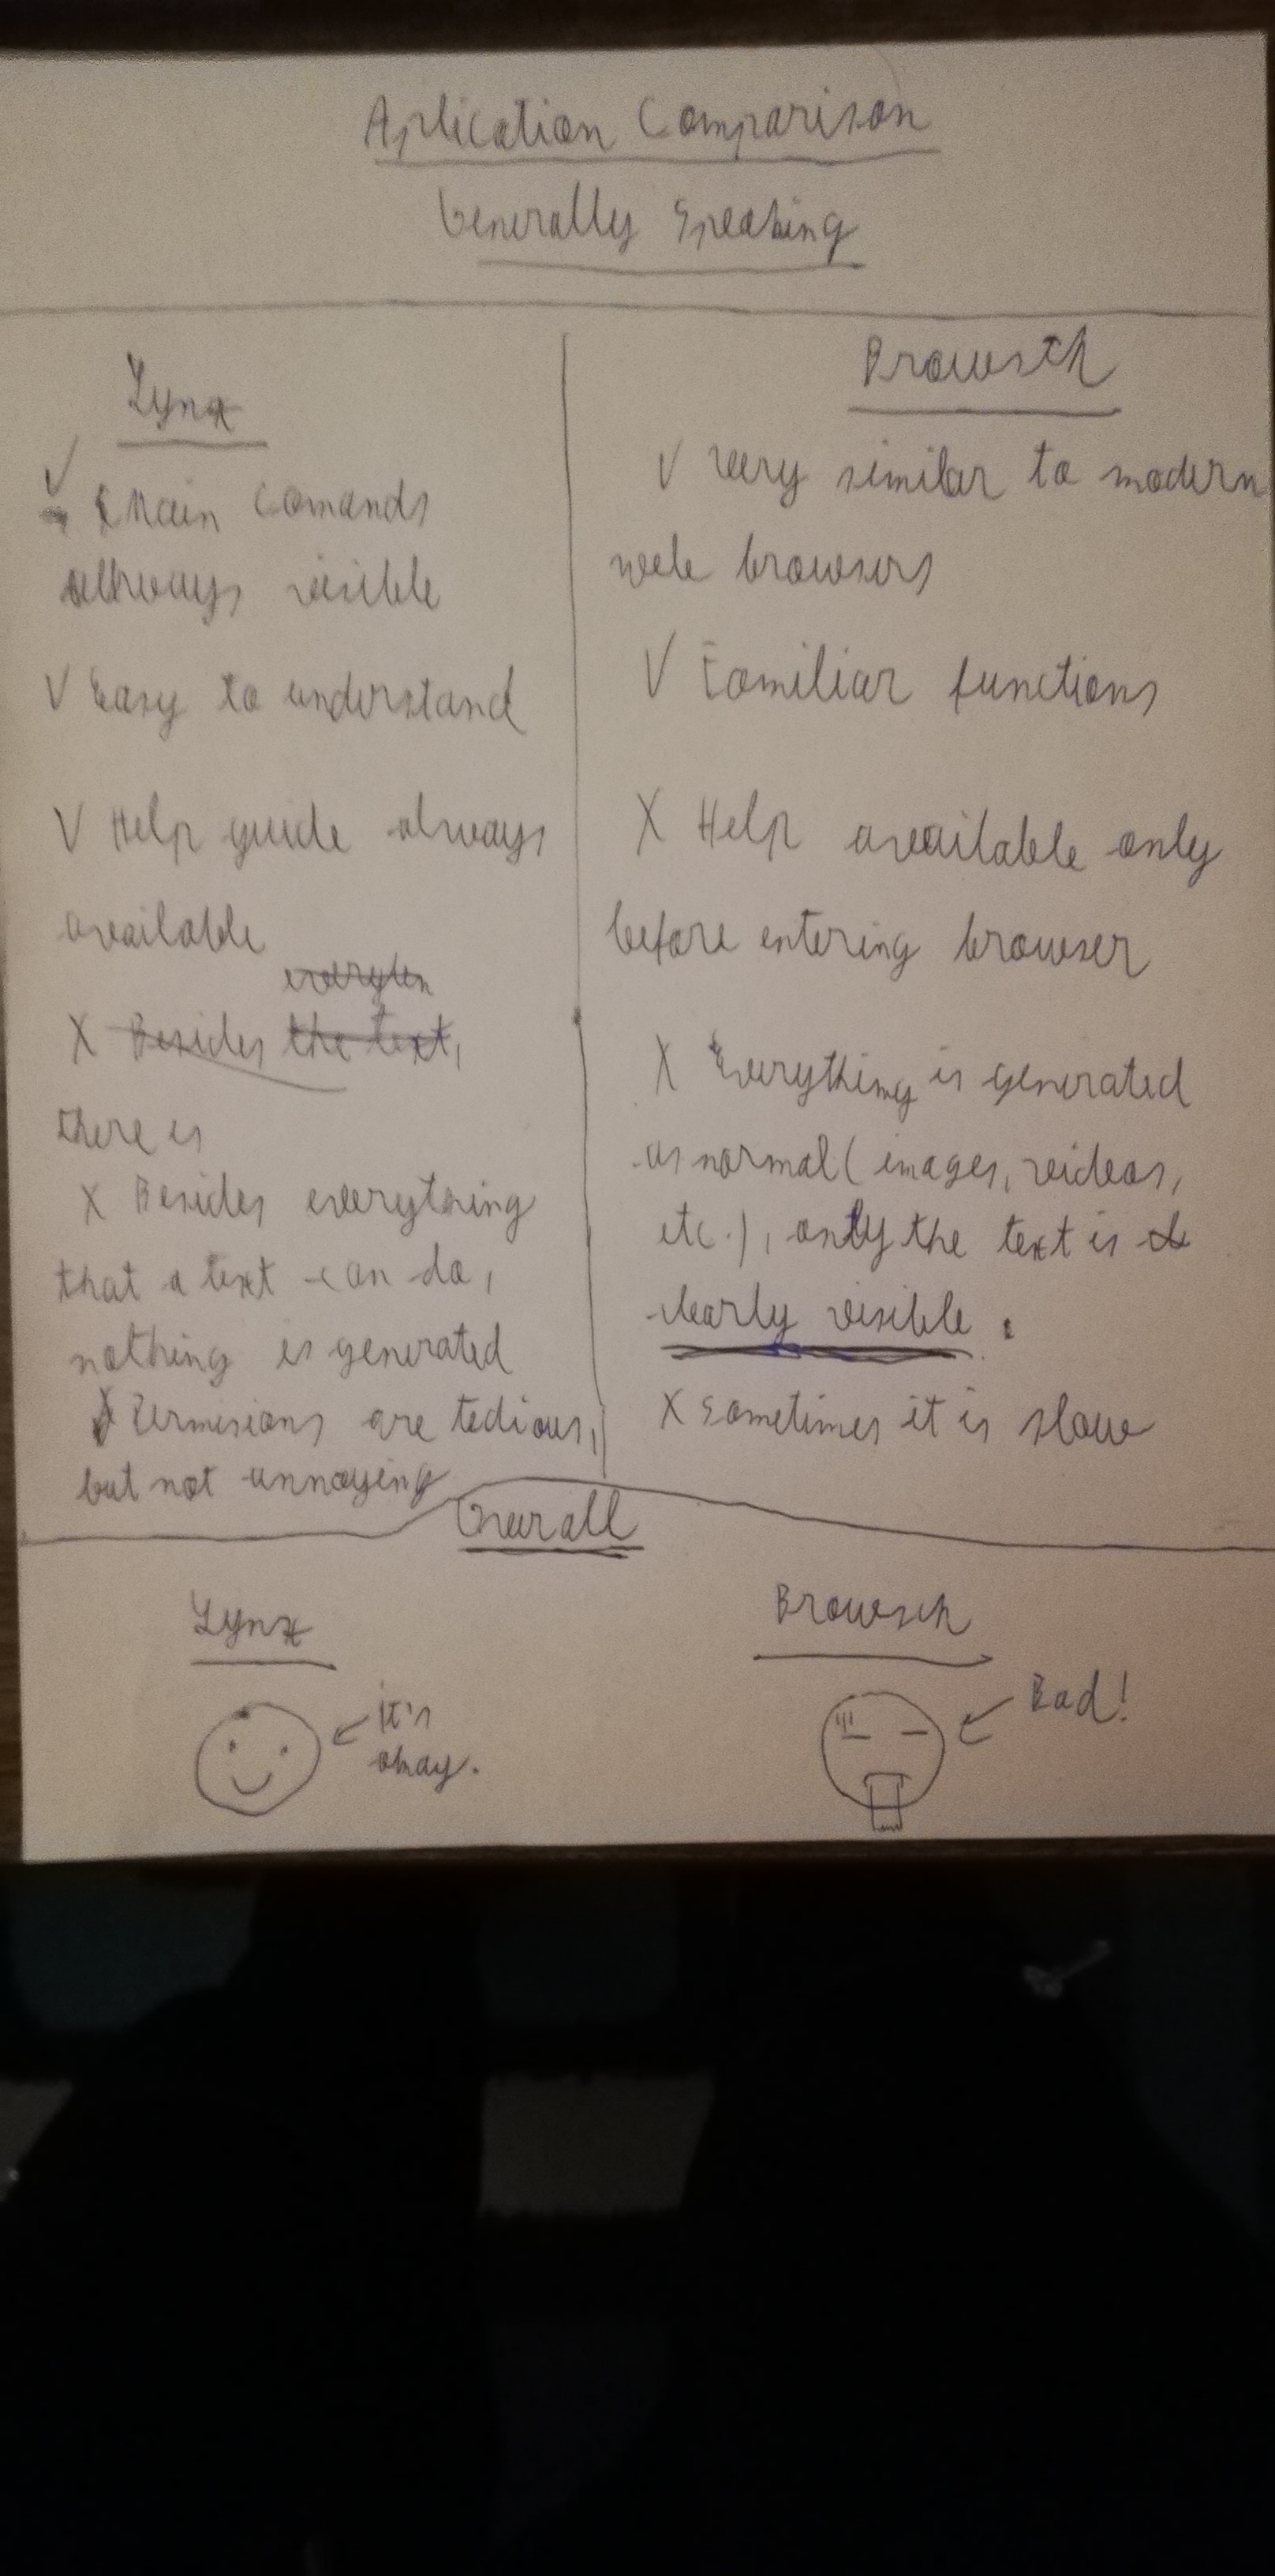 Aplication Comparison
Generally Speaking
Lynx
✓ Main comands
allways visible
V Easy to understand
V Help guide always
available
everyten
X Besides the text,
there is
X Besides everything
that a text can do,
nothing is generated
X Permisions are tedious,
but not annoying
Browsth
V Very similar to modern
web browsers
V Familiar functions
X Help available only
before entering browser
X Everything is generated
as normal (images, videos,
etc.), only the text is
clearly visible.
X Sometimes it is slow
Overall
Lynx
It's
okay.
Browsch
Bad!